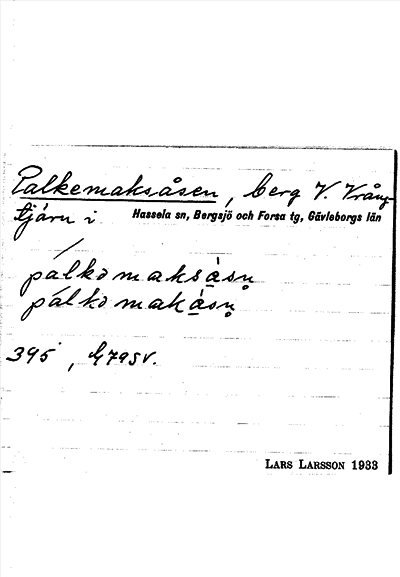 Palkemaksåsen, berg V. Vrång-
tjärn i Hassela sn, Bergsjö och Forsa tg, Gävleborgs län
pálkomaksàsn̥
pálkomakàsn̥
395, G79SV.
LARS LARSSON 1933